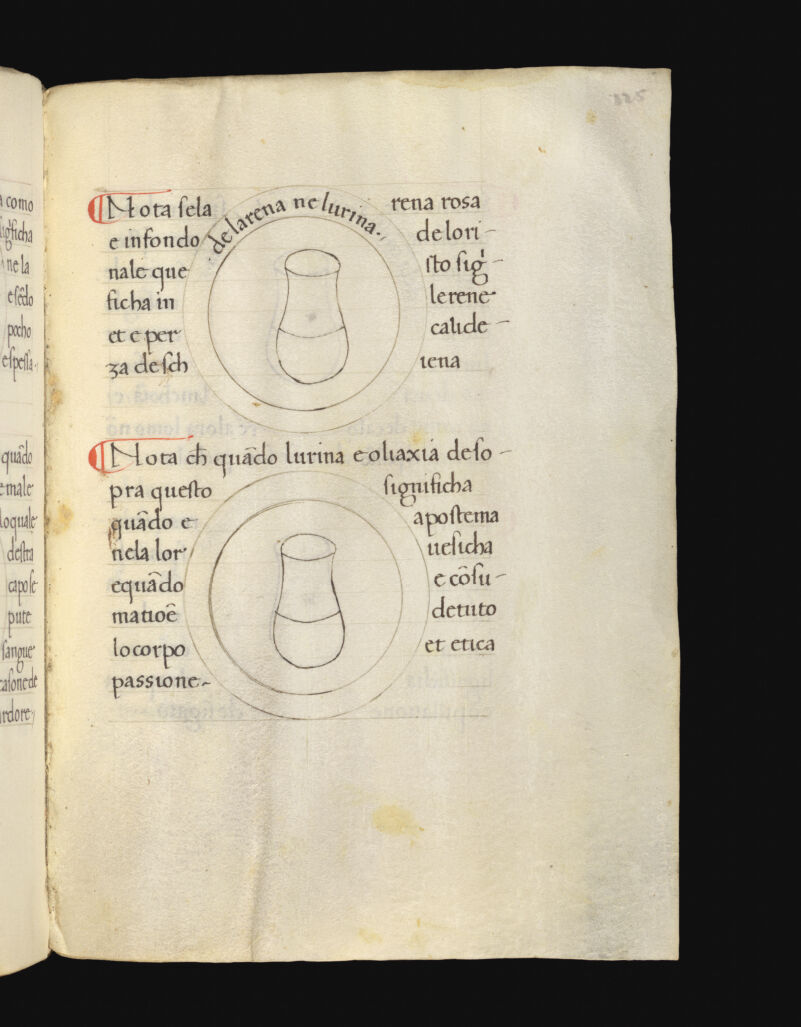 como
ficha
ne la
e sēdo
pocho
e spessa
quādo
e male
lo quale
destra
capo se
pute
sangue
casone de
ardore
125
¶ Nota se la rena rosa
de la rena ne lurina
e in fondo de lori-
nale que sto sig-
ficha in le rene
et e per calide-
za de sch iena
¶ Nota ch̄ quādo lurina e oliaxia de so-
pra questo significha
quādo e apostema
ne la lor uesicha
e quādo e cōsu-
matiōe de tuto
lo corpo et etica
passione